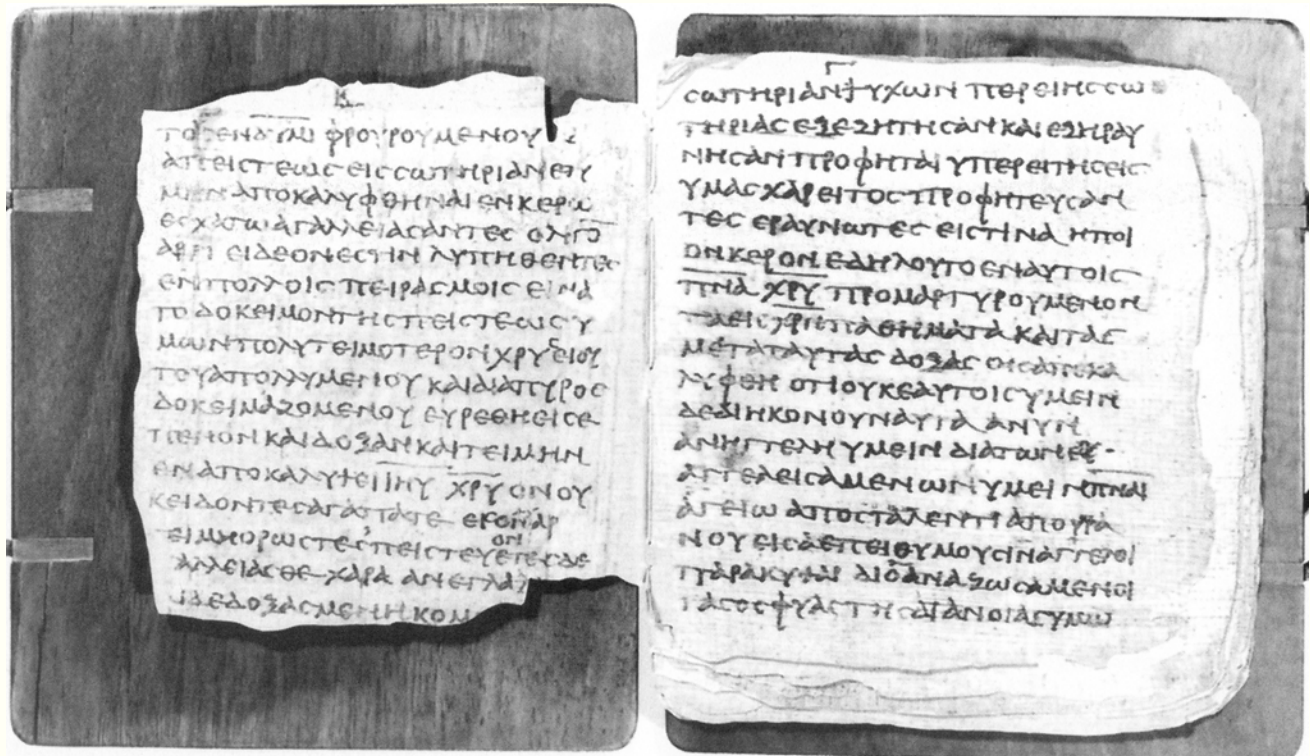 Β
ΤΟϹ ΕΝ ΔΥΝΑΜΙ ΦΡΟΥΡΟΥΜΕΝΟΥϹ
ΑΠΕΙϹΤΕΩϹ ΕΙϹ ϹΩΤΗΡΙΑΝ ΕΤΥ
ΜΗΝ ΑΠΟΚΑΛΥΦΘΗΝΑΙ ΕΝ ΚΕΡΩ
ΕϹΧΑΤΩ ΑΓΑΛΛΕΙΑϹΑΝΤΕϹ ΟΛΙΓΟ
ΑΡΤΙ ΕΙ ΔΕΟΝ ΕϹΤΙΝ ΛΥΠΗΘΕΝΤΕϹ
ΕΝ ΠΟΛΛΟΙϹ ΠΕΙΡΑϹΜΟΙϹ ΕΙΝΑ
ΤΟ ΔΟΚΕΙΜΟΝ ΤΗϹ ΠΕΙϹΤΕΩϹ Υ
ΜΩΝ ΠΟΛΥΤΕΙΜΟΤΕΡΟΝ ΧΡΥϹΕΙΟΥ
ΤΟΥ ΑΠΟΛΛΥΜΕΝΟΥ ΚΑΙ ΔΙΑ ΠΥΡΟϹ
ΔΟΚΕΙΜΑΖΟΜΕΝΟΥ ΕΥΡΕΘΗ ΕΙϹ Ε
ΠΕΝΟΝ ΚΑΙ ΔΟΞΑΝ ΚΑΙ ΤΕΙΜΗΝ
ΕΝ ΑΠΟΚΑΛΥΨΕΙ ΙΗΥ ΧΡΥ ΟΝ ΟΥ
Κ ΕΙΔΟΝΤΕϹ ΑΓΑΠΑΤΕ ΕΙϹ ΟΝ ΑΡ
ΤΕΙ ΜΗ ΟΡΩΝΤΕϹ ΠΕΙϹΤΕΥΟΝΤΕϹ ΔΕ
ΑΛΛΕΙΑϹΘΕ ΧΑΡΑ ΑΝΕΓΛΑΛ
ΔΕΔΟΞΑϹΜΕΝΗ ΚΟΜ
Γ
ϹΩΤΗΡΙΑΝ ΨΥΧΩΝ ΠΕΡΕΙ ΗϹ ϹΩ
ΤΗΡΙΑϹ ΕΞΕΖΗΤΗϹΑΝ ΚΑΙ ΕΞΗΡΑΥ
ΝΗϹΑΝ ΠΡΟΦΗΤΑΙ Υ ΠΕΡΕΙ ΤΗϹ ΕΙϹ
ΥΜΑϹ ΧΑΡΕΙΤΟϹ ΠΡΟΦΗΤΕΥϹΑΝ
ΤΕϹ ΕΡΑΥΝΩΤΕϹ ΕΙϹ ΤΙΝΑ Η ΠΟΙ
ΟΝ ΚΕΡΟΝ ΕΔΗΛΟΥΤΟ ΕΝ ΑΥΤΟΙϹ
ΠΝΑ ΧΡΥ ΠΡΟΜΑΡΤΥΡΟΥΜΕΝΟΝ
ΤΑ ΕΙϹ ΧΡΝ ΠΑΘΗΜΑΤΑ ΚΑΙ ΤΑϹ
ΜΕΤΑ ΤΑΥΤΑϹ ΔΟΞΑϹ ΟΙϹ ΑΠΕΚΑ
ΛΥΦΘΗ ΟΤΙ ΟΥΚ ΕΑΥΤΟΙϹ ΥΜΕΙΝ
ΔΕ ΔΙΗΚΟΝΟΥΝ ΑΥΤΑ Α ΝΥΝ
ΑΝΗΓΓΕΛΗ ΥΜΕΙΝ ΔΙΑ ΤΩΝ ΕΥ
ΑΓΓΕΛΕΙϹΑΜΕΝΩΝ ΥΜΕΙΝ ΠΝΑΙ
ΑΓΕΙΩ ΑΠΟϹΤΑΛΕΝΤΙ ΑΠ ΟΥΡΑ
ΝΟΥ ΕΙϹ Α ΕΠΕΙΘΥΜΟΥϹΙΝ ΑΓΓΕΛΟΙ
ΠΑΡΑΚΥΨΑΙ ΔΙΟ ΑΝΑΖΩϹΑΜΕΝΟΙ
ΤΑϹ ΟϹΦΥΑϹ ΤΗϹ ΔΙΑΝΟΙΑϹ ΥΜΩΝ